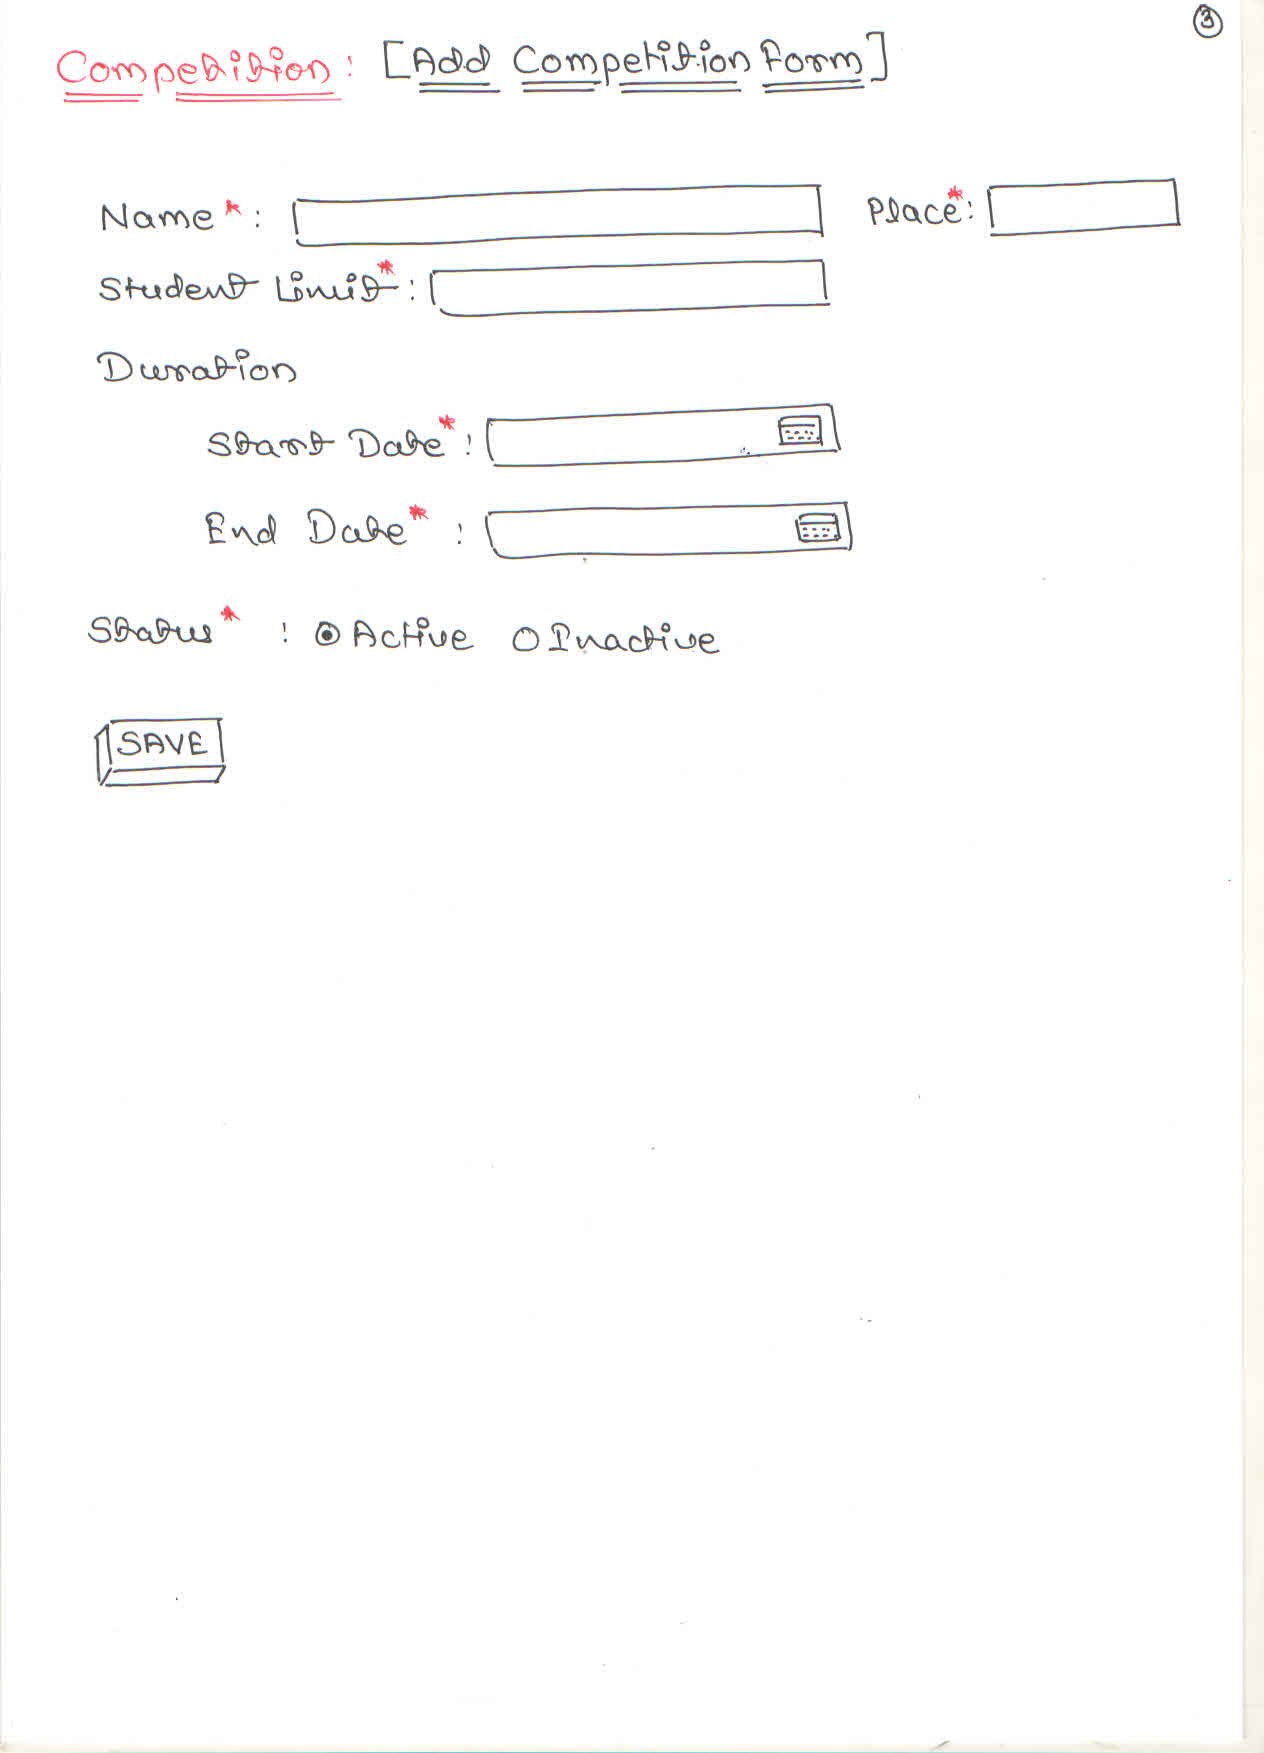 3
Competition : [Add Competition Form]
Name * : Place * :
Student Limit * :
Duration
Start Date * :
End Date * :
Status * : Active Inactive
SAVE